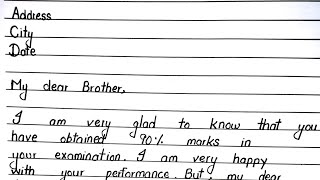 Address
City
Date
My dear Brother,
I am very glad to know that you
have obtained 90% marks in
your examination. I am very happy
with your performance. But, my dear